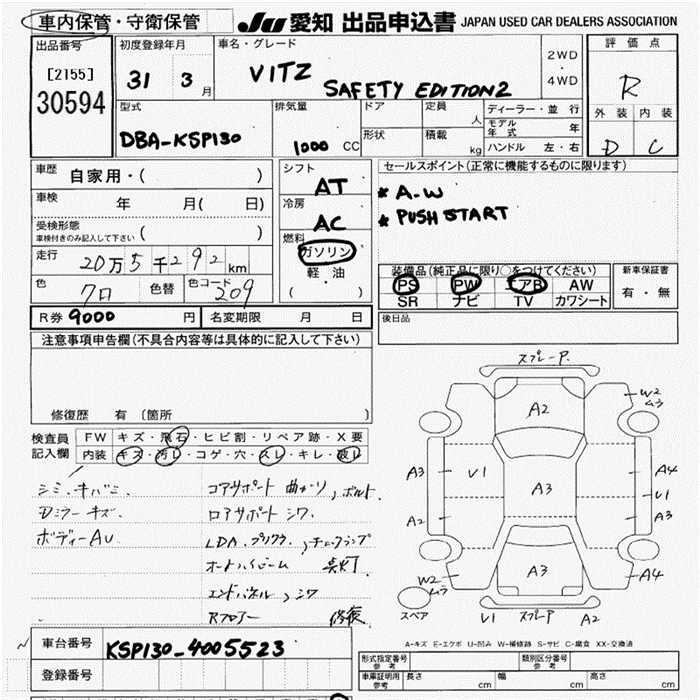 車内保管・守衛保管
JU 愛知 出品申込書 JAPAN USED CAR DEALERS ASSOCIATION
出品番号 初度登録年月 車名・グレード 評価点
[2155] 31 3月 VITZ SAFETY EDITION2 2WD・4WD R
30594 外装 内装
D C
型式 排気量 ドア 定員 人 ディーラー・並行
DBA-KSP130 1000 CC 形状 積載 kg モデル年式 年
ハンドル 左・右
車歴 自家用・( )
車検 年 月( 日)
受検形態 車検付きのみ記入して下さい ( )
走行 20万5千292km
色 クロ 色替 色コード 209
シフト AT
冷房 AC
燃料 ガソリン
軽油
( )
セールスポイント(正常に機能するものに限ります)
* A-W
* PUSH START
装備品(純正品に限り○をつけてください) 新車保証書
PS PW エアB AW 有・無
SR ナビ TV カワシート
R券 9000 円 名変期限 月 日
後日品
注意事項申告欄(不具合内容等は具体的に記入して下さい)
修復歴 有 [箇所 ]
検査員記入欄 FW キズ・飛石・ヒビ割・リペア跡・X要
内装 キズ・汚レ・コゲ・穴・スレ・キレ・破レ
シミ・キバミ コアサポート曲がり、ボルト
Dミラーキズ. ロアサポートシワ
ボディーAU LDA.プリクラ、チェックランプ
オートハイビーム 点灯
エンドパネル、シワ
Rフロアー 修復
スプレーP.
A2
W2 ムラ
A3 V1 A3 A4
V1
A2 A3
A3
W2 ムラ A4
スペア
V1 スプレーP A2
A-キズ E-エクボ U-凹み W-補修跡 S-サビ C-腐食 XX-交換済
車台番号 KSP130-4005523
登録番号
形式指定番号 参考 類別区分番号 参考
車庫証明用 参考 長さ cm 幅 cm 高さ cm